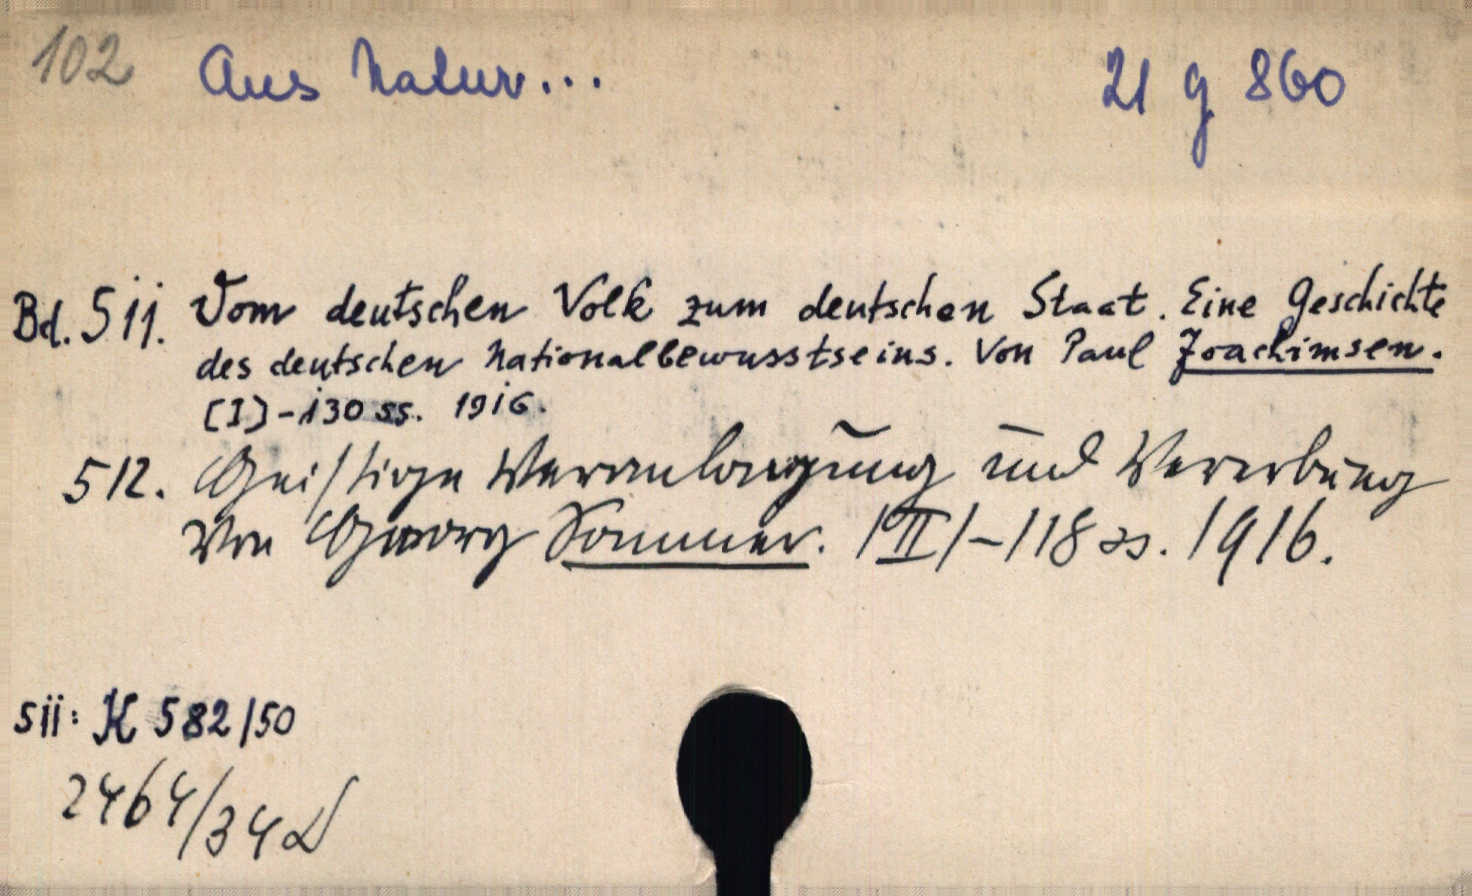 102 Aus Natur... 21 g 860
Bd. 511. Vom deutschen Volk zum deutschen Staat. Eine Geschichte
des deutschen Nationalbewusstseins. Von Paul Joachimsen.
[I]-130 ss. 1916.
512. Geistige Veranlagung und Vererbung
Von Georg Sommer. /II/-118 ss. 1916.
511: K 582/50
2464/34